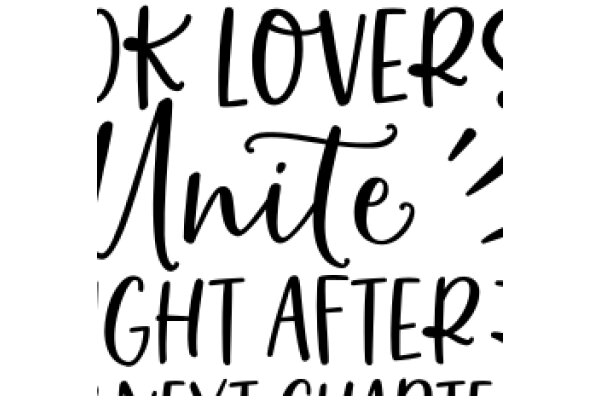 OK LOVERS
Unite
GHT AFTER
NEXT CHAPTE